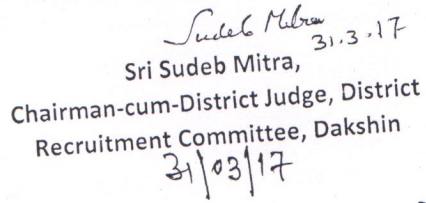 Sudeb Mitra
31.3.17
Sri Sudeb Mitra,
Chairman-cum-District Judge, District
Recruitment Committee, Dakshin
31/03/17